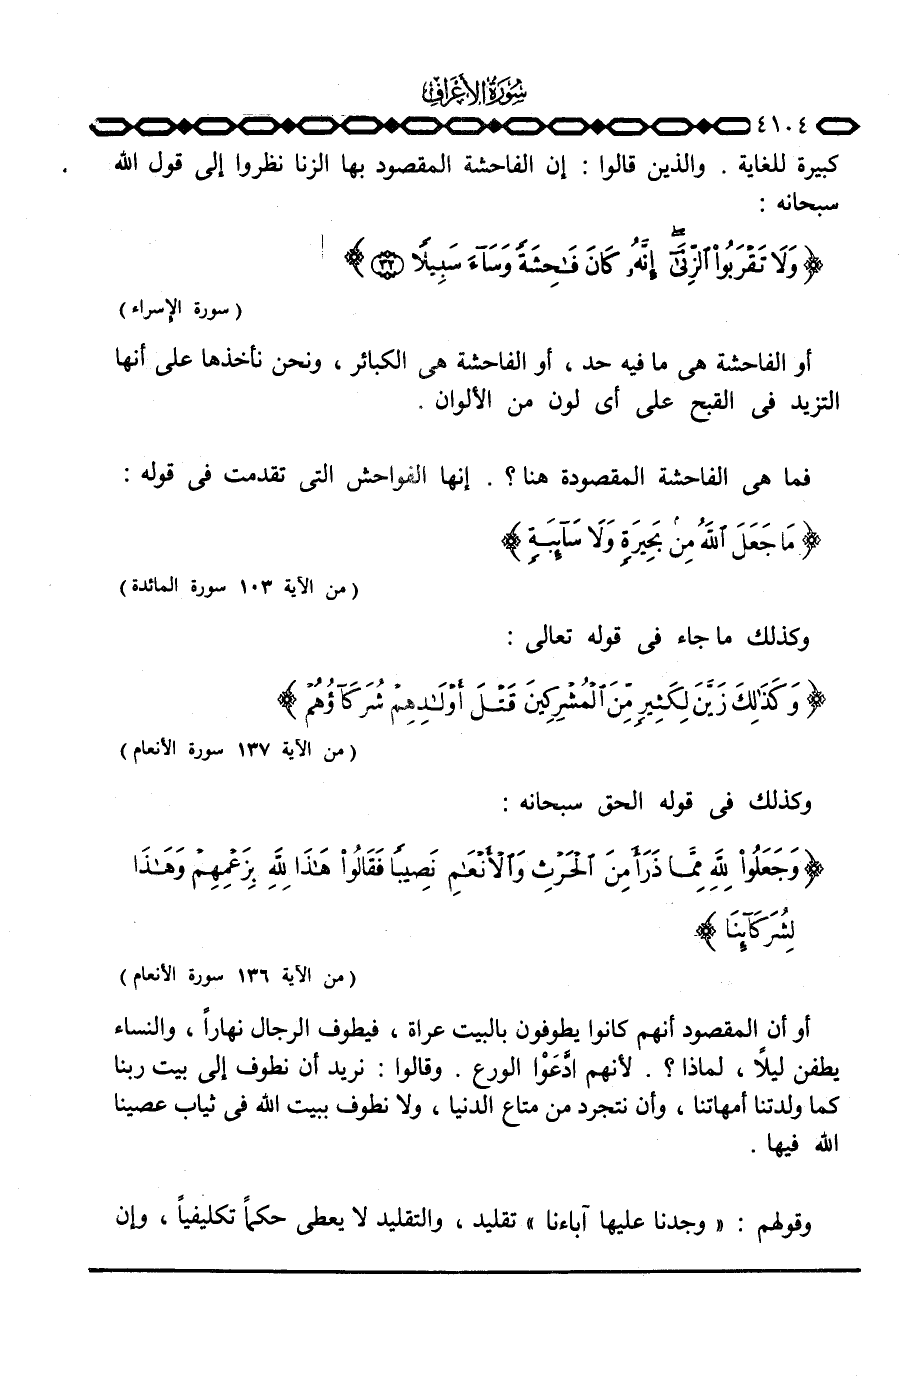 سُورَةُ الأَعْرَافِ
٤١٠٤
كبيرة للغاية . والذين قالوا : إن الفاحشة المقصود بها الزنا نظروا إلى قول الله
سبحانه :
﴿ وَلَا تَقْرَبُوا۟ ٱلزِّنَىٰٓ ۖ إِنَّهُۥ كَانَ فَـٰحِشَةً وَسَآءَ سَبِيلًا ﴿٣٢﴾ ﴾
( سورة الإسراء )
أو الفاحشة هى ما فيه حد ، أو الفاحشة هى الكبائر ، ونحن نأخذها على أنها
التزيد فى القبح على أى لون من الألوان .
فما هى الفاحشة المقصودة هنا ؟ . إنها الفواحش التى تقدمت فى قوله :
﴿ مَا جَعَلَ ٱللَّهُ مِنۢ بَحِيرَةٍ وَلَا سَآئِبَةٍ ﴾
( من الآية ١٠٣ سورة المائدة )
وكذلك ما جاء فى قوله تعالى :
﴿ وَكَذَٰلِكَ زَيَّنَ لِكَثِيرٍ مِّنَ ٱلْمُشْرِكِينَ قَتْلَ أَوْلَـٰدِهِمْ شُرَكَآؤُهُمْ ﴾
( من الآية ١٣٧ سورة الأنعام )
وكذلك فى قوله الحق سبحانه :
﴿ وَجَعَلُوا۟ لِلَّهِ مِمَّا ذَرَأَ مِنَ ٱلْحَرْثِ وَٱلْأَنْعَـٰمِ نَصِيبًا فَقَالُوا۟ هَـٰذَا لِلَّهِ بِزَعْمِهِمْ وَهَـٰذَا
لِشُرَكَآئِنَا ﴾
( من الآية ١٣٦ سورة الأنعام )
أو أن المقصود أنهم كانوا يطوفون بالبيت عراة ، فيطوف الرجال نهاراً ، والنساء
يطفن ليلًا ، لماذا ؟ . لأنهم ادَّعَوْا الورع . وقالوا : نريد أن نطوف إلى بيت ربنا
كما ولدتنا أمهاتنا ، وأن نتجرد من متاع الدنيا ، ولا نطوف ببيت الله فى ثياب عصينا
الله فيها .
وقولهم : « وجدنا عليها آباءنا » تقليد ، والتقليد لا يعطى حكماً تكليفياً ، وإن